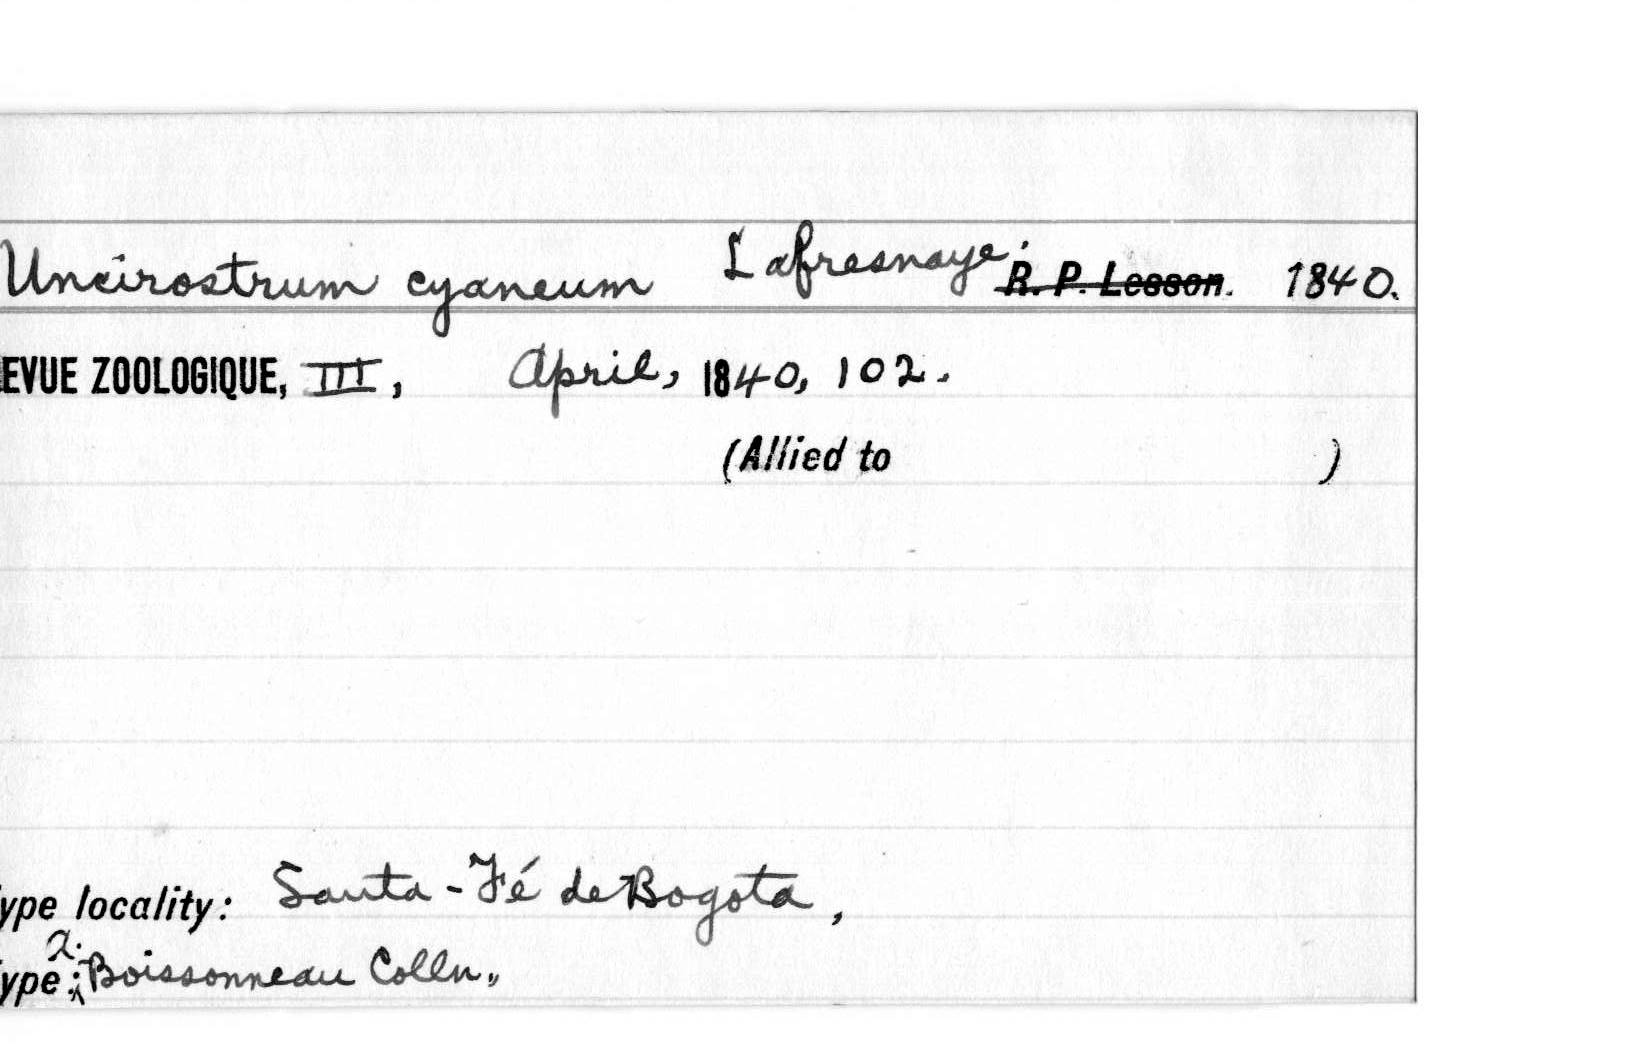 Uncirostrum cyaneum Lafresnaye. R. P. Lesson. 1840.
EVUE ZOOLOGIQUE, III, April, 1840, 102.
(Allied to )
ype locality: Santa-Fé de Bogota,
ype: A. Boissonneau Colln.,